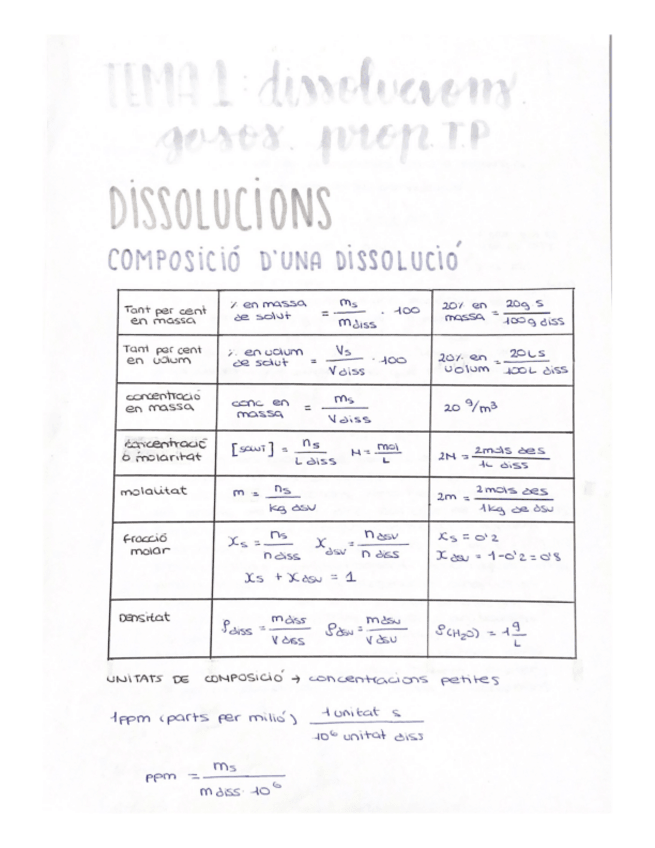 TEMA 1: dissolucions
gasos. prop. T.P
DISSOLUCIONS
COMPOSICIÓ D'UNA DISSOLUCIÓ
Tant per cent en massa | % en massa de solut = ms / mdiss · 100 | 20% en massa = 20g s / 100g diss
Tant per cent en volum | % en volum de solut = Vs / Vdiss · 100 | 20% en volum = 20L s / 100L diss
concentració en massa | conc en massa = ms / Vdiss | 20 g/m3
concentració o molaritat | [solut] = ns / L diss M = mol / L | 2M = 2mols des / 1L diss
molalitat | m = ns / kg dsv | 2m = 2mols des / 1kg de dsv
fracció molar | Xs = ns / n diss Xdsv = n dsv / n diss | Xs = 0'2
Xs + Xdsv = 1 | Xdsv = 1-0'2 = 0'8
Densitat | ρdiss = mdiss / Vdiss ρdsv = mdsv / Vdsv | ρ(H2O) = 1 g/L
UNITATS DE COMPOSICIÓ → concentracions petites
1ppm (parts per milió) 1 unitat s / 10⁶ unitat diss
ppm = ms / mdiss · 10⁶